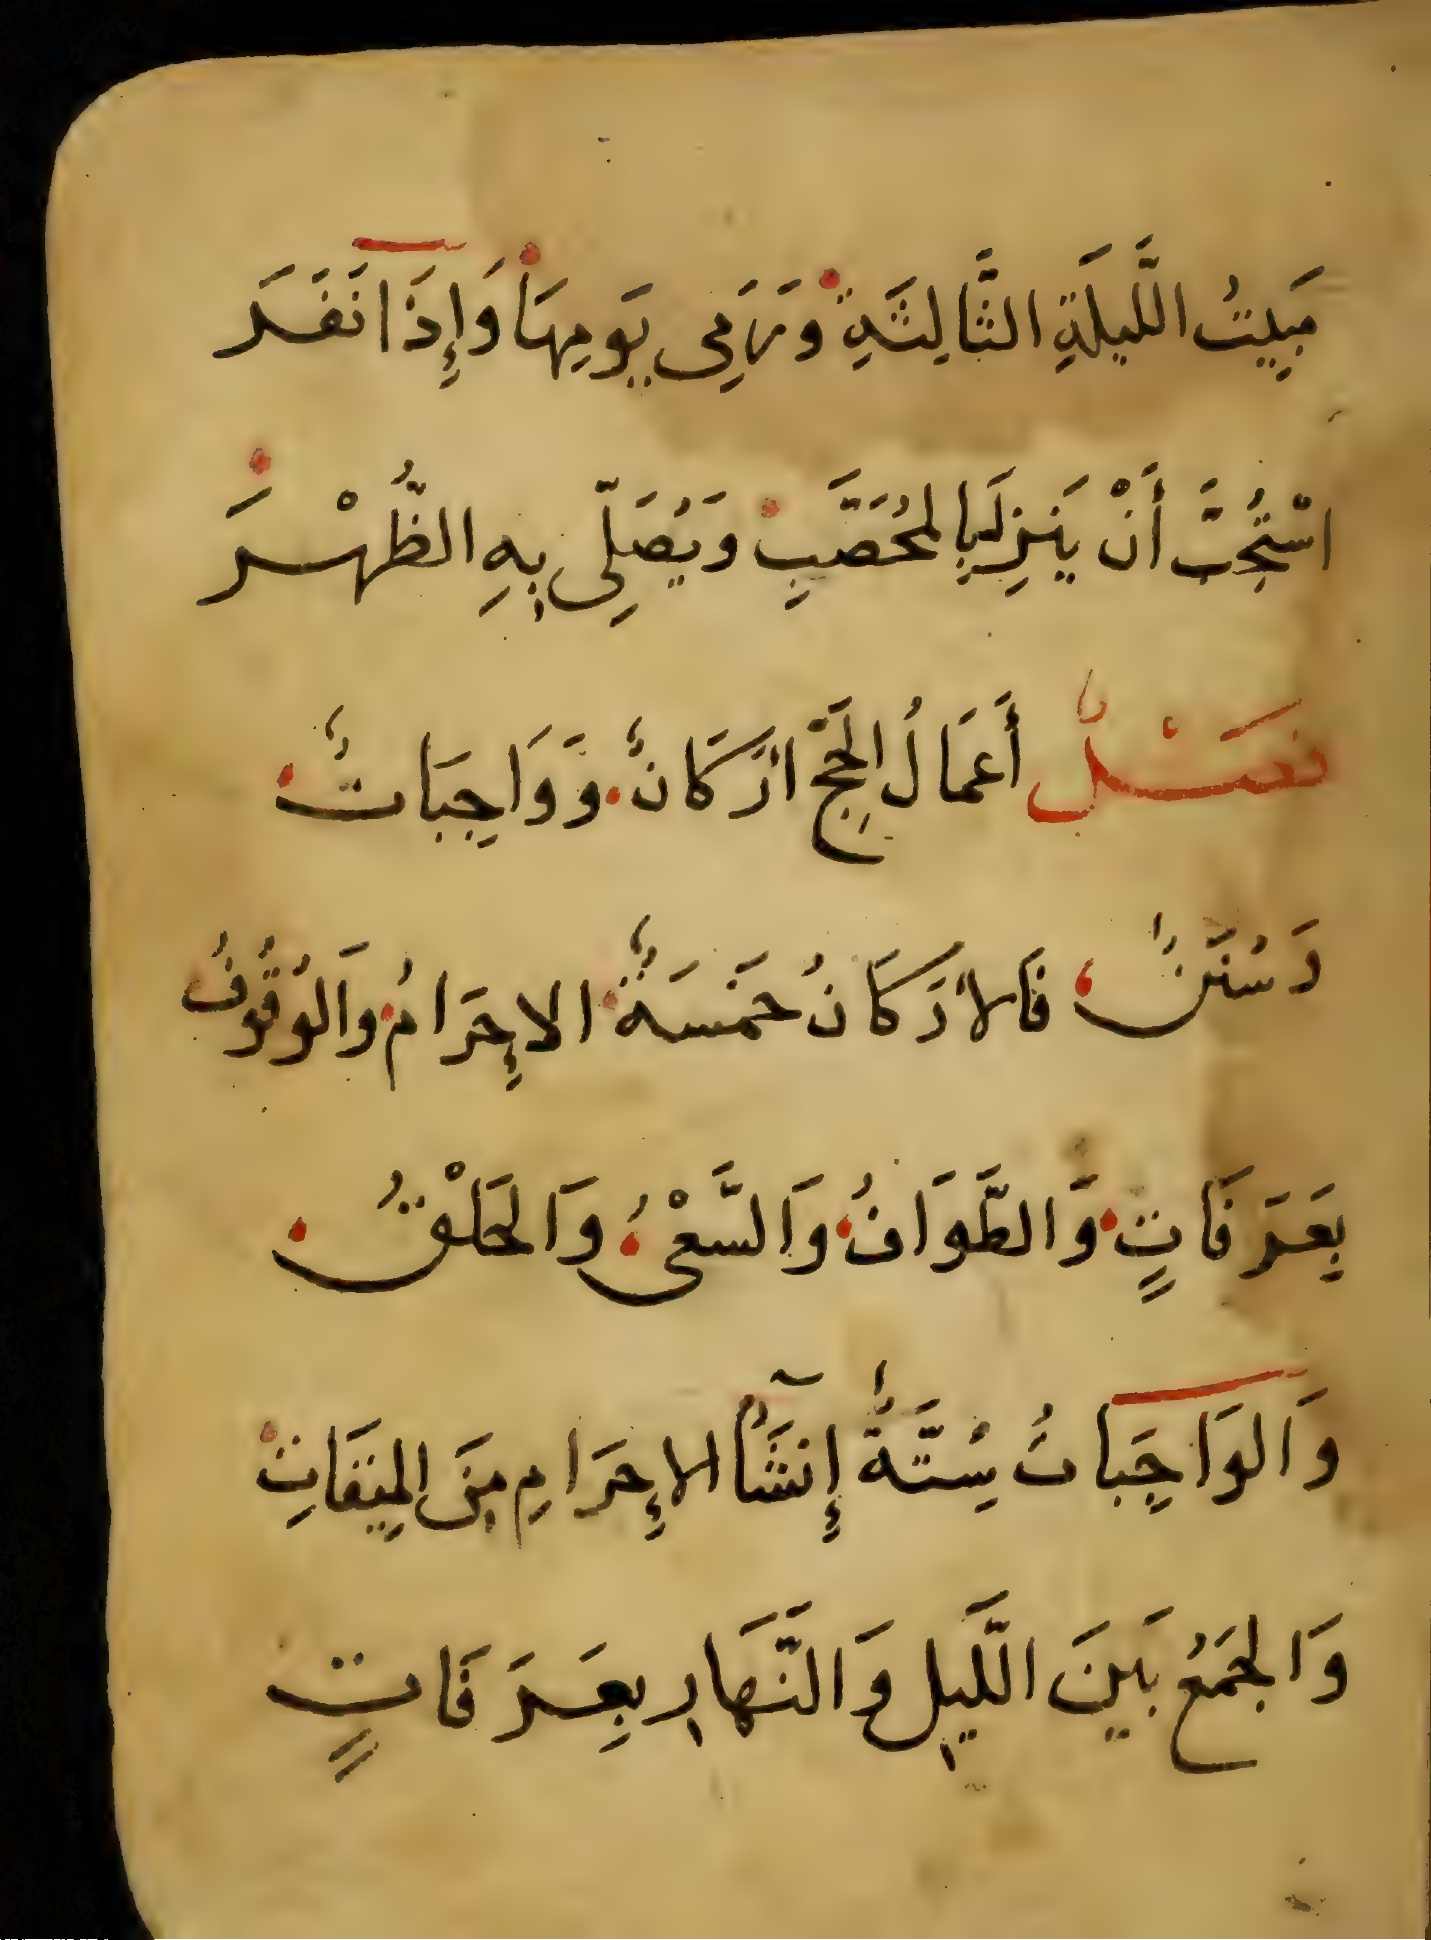 مَبِيتُ اللَّيلَةِ الثَّالِثَةِ وَرَمِى يَومِهَا وَإِذَا نَفَرَ
اسْتُحِبَّ أَنْ يَنزِلَ بِالمُحَصَّبِ وَيُصَلِّى بِهِ الظُّهْرَ
فصْلٌ أَعمَالُ الحَجِّ أرَكَانٌ وَوَاجِبَاتٌ
وَسُنَنٌ فَالأرَكَانُ خَمسَةٌ الإِحَرَامُ وَالوُقُوفُ
بِعَرَفَاتٍ وَالطَّوَافُ وَالسَّعْىُ وَالحَلْقُ
وَالوَاجِبَاتُ سِتَّةٌ إِنشَآءُ الإِحَرَامِ مِنَ المِيقَاتِ
وَالجَمعُ بَينَ اللَّيلِ وَالنَّهَارِ بِعَرَفَاتٍ